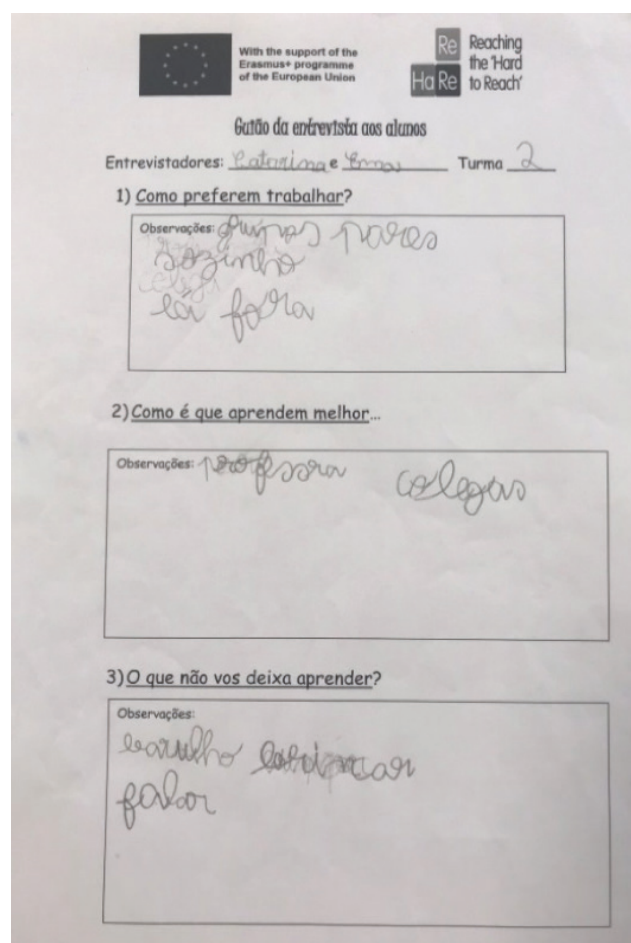 With the support of the
Erasmus+ programme
of the European Union
Re
Ha Re
Reaching
the 'Hard
to Reach'
Guião da entrevista aos alunos
Entrevistadores: Catarina e Emma Turma 2
1) Como preferem trabalhar?
Observações: pares
sozinho
lá fora
2) Como é que aprendem melhor...
Observações: professora colegas
3) O que não vos deixa aprender?
Observações:
barulho brincar
falar